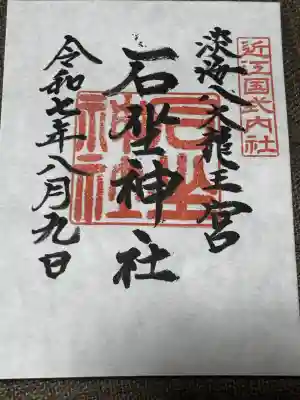 近江国式内社
淡海八大龍王宮
石坐神社
石坐神社
令和七年八月九日